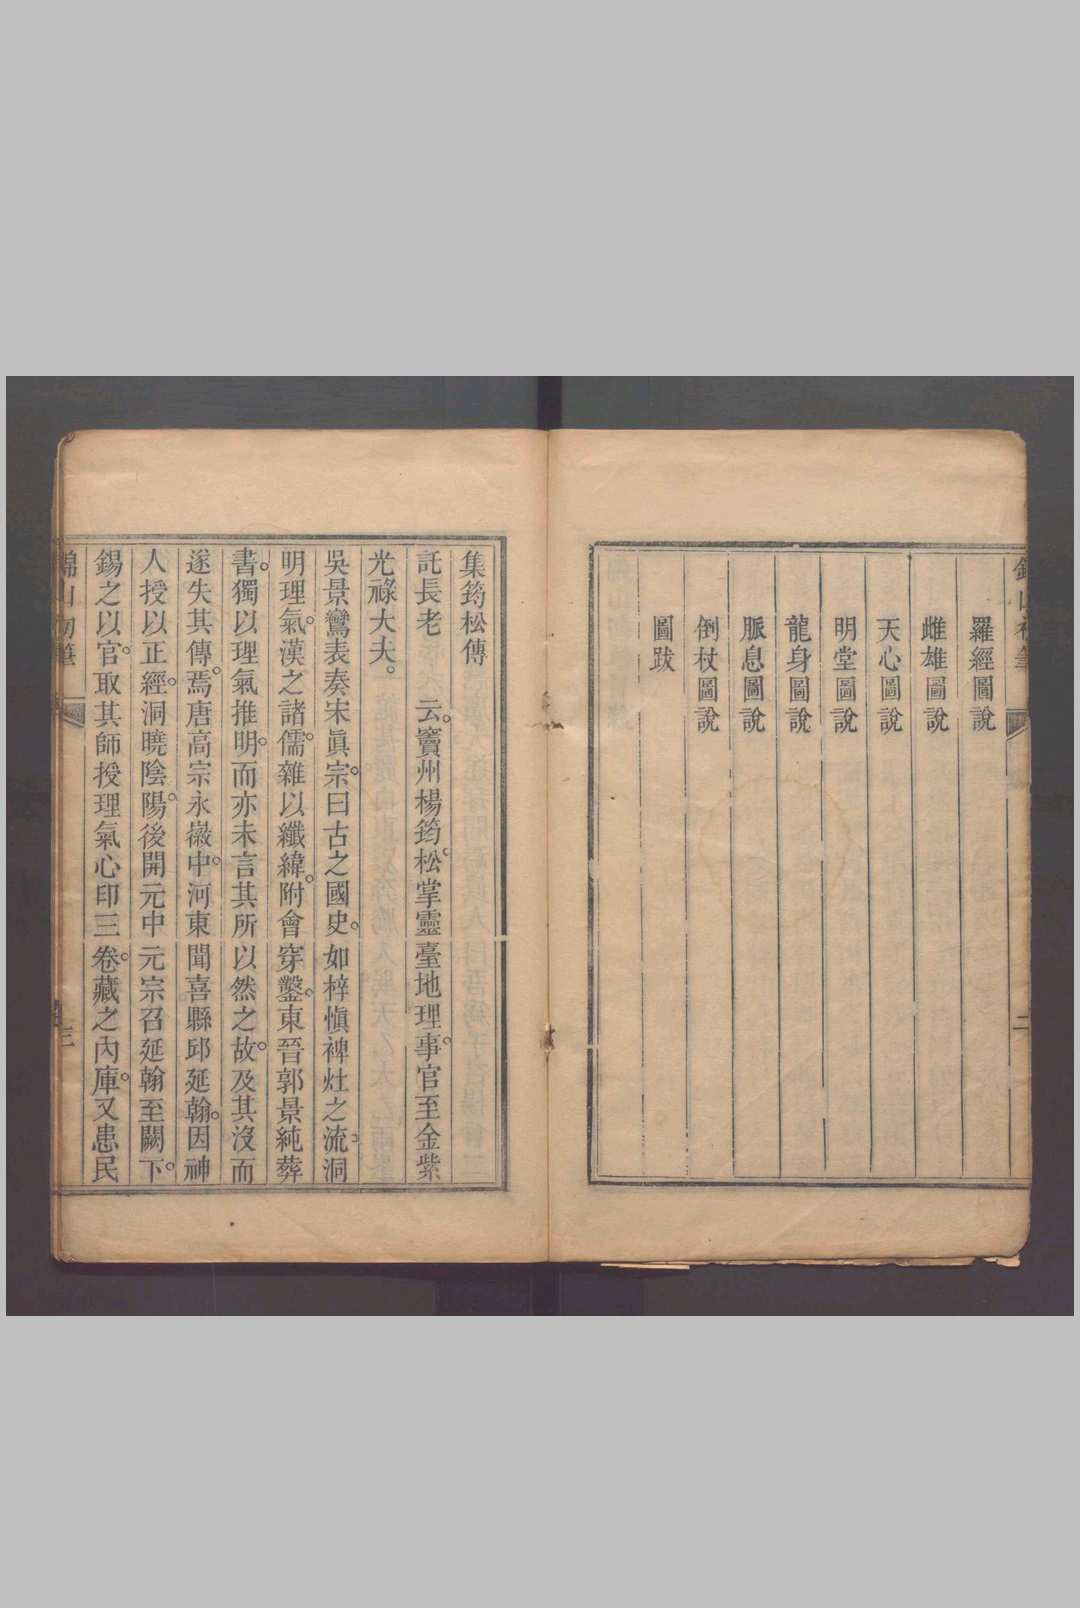 羅經圖說
雌雄圖說
天心圖說
明堂圖說
龍身圖說
脈息圖說
倒杖圖說
圖跋
二
集筠松傳
託長老　云竇州楊筠松掌靈臺地理事官至金紫
光祿大夫
吳景鸞表奏宋眞宗曰古之國史如梓愼裨灶之流洞
明理氣漢之諸儒雜以纖緯附會穿鑿東晉郭景純葬
書獨以理氣推明而亦未言其所以然之故及其沒而
遂失其傳焉唐高宗永徽中河東聞喜縣邱延翰因神
人授以正經洞曉陰陽後開元中元宗召延翰至闕下
錫之以官取其師授理氣心印三卷藏之內庫又患民
三